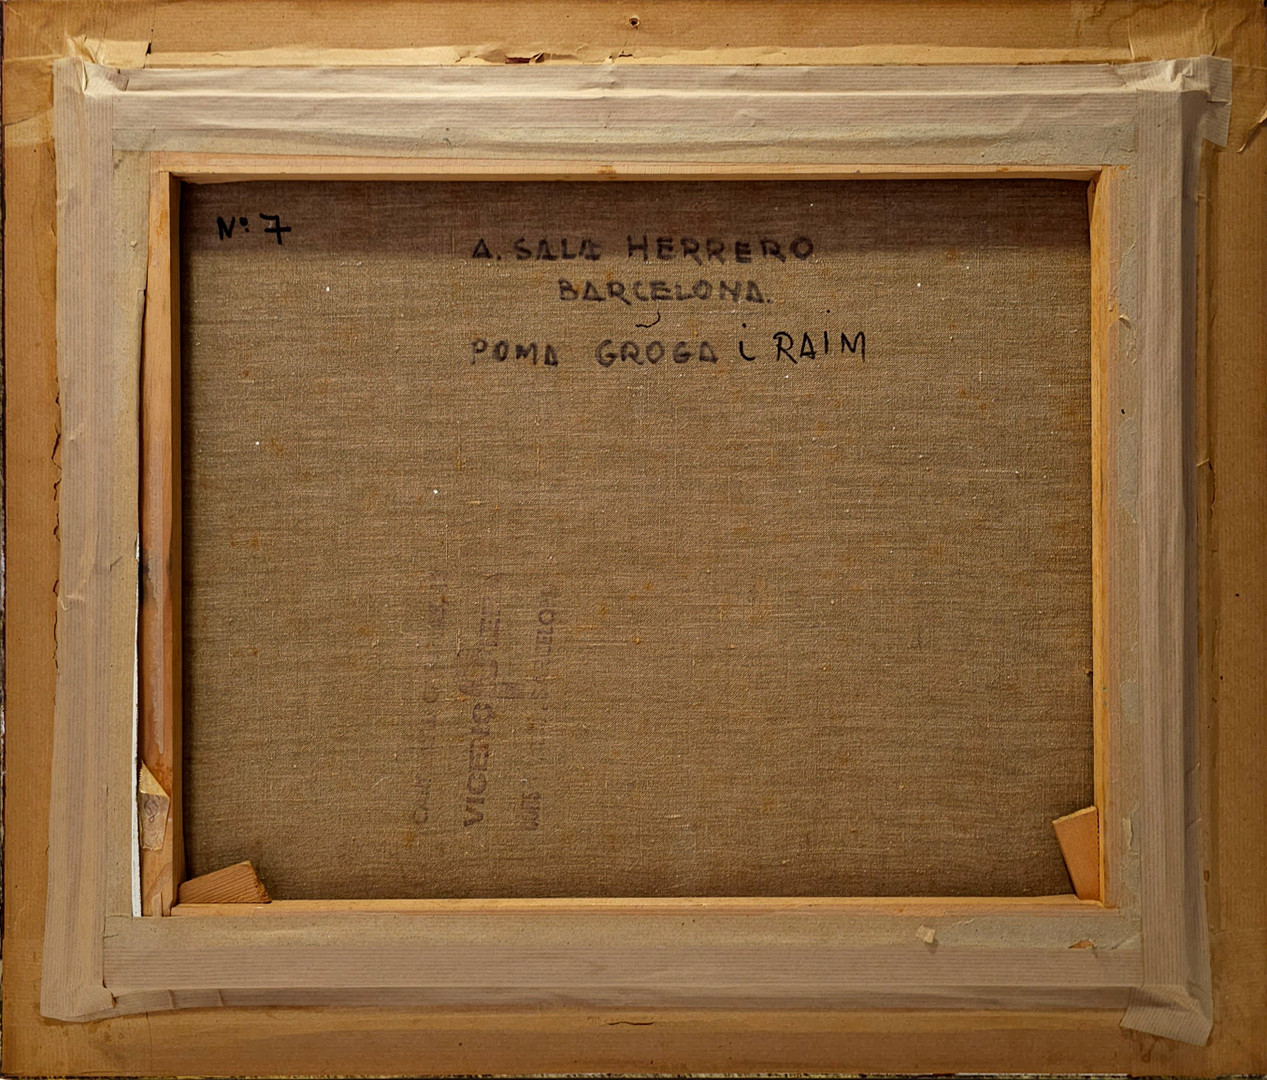 Nº 7
A. SALA HERRERO
BARCELONA.
POMA GROGA i RAÏM